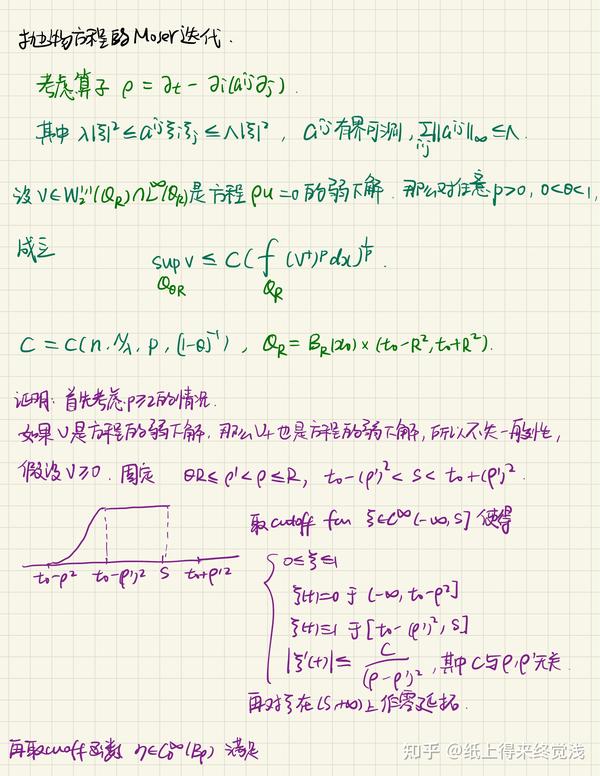 抛物方程的Moser迭代.
考虑算子 ρ = ∂t - ∂i(a^{ij}∂j).
其中 λ|ξ|² ≤ a^{ij}ξiξj ≤ Λ|ξ|², a^{ij}有界可测, Σ_{ij}||a^{ij}||∞ ≤ Λ.
设 V∈W₂^{1,1}(Q_R)∩L^∞(Q_R)是方程 ρu=0 的弱下解. 那么对任意 p>0, 0<θ<1,
成立 sup_{Q_{θR}} V ≤ C(⨍_{Q_R} (V⁺)^p dx)^{1/p}.
C = C(n, Λ/λ, p, (1-θ)^{-1}), Q_R = B_R(x₀)×(t₀-R², t₀+R²).
证明: 首先考虑 p≥2的情况.
如果 V是方程的弱下解, 那么V₊也是方程的弱下解, 所以不失一般性,
假设 V≥0. 固定 θR≤ρ'<ρ≤R, t₀-(ρ')²<s<t₀+(ρ')².
取cutoff fcn ξ∈C^∞(-∞,s] 使得
t₀-ρ² t₀-ρ'² s t₀+ρ'²
0≤ξ≤1
ξ(t)=0 于 (-∞, t₀-ρ²]
ξ(t)≡1 于 [t₀-(ρ')², s]
|ξ'(t)| ≤ C/(ρ-ρ')², 其中C与ρ,ρ'无关.
再对ξ在(s,+∞)上作零延拓.
再取cutoff函数 η∈C₀^∞(B_ρ) 满足
知乎 @纸上得来终觉浅